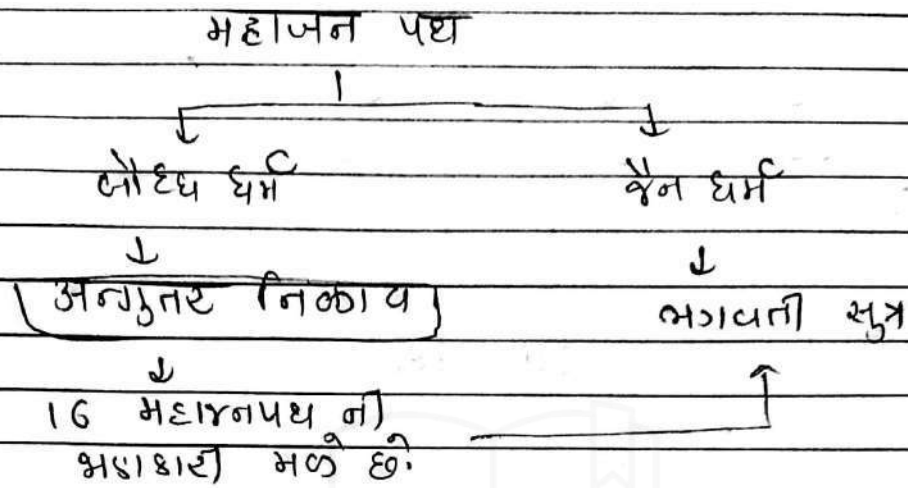 મહાજન પથ
બૌદ્ધ ધર્મ
જૈન ધર્મ
અન્ગુતર નિકાય
ભગવતી સુત્ર
16 મહાજનપથ ની
જાણકારી મળે છે.